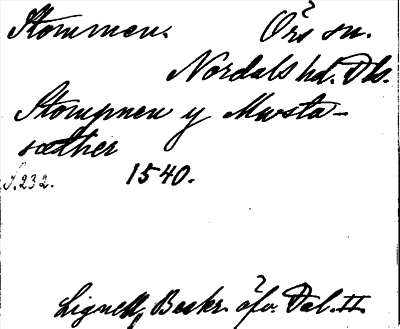 Stommen. Örs sn.
Nordals hd. Dls.
Stompnen y Mwsta-
sæther
S. 232. 1540.
Lignell, Beskr. öfv. Dal. II